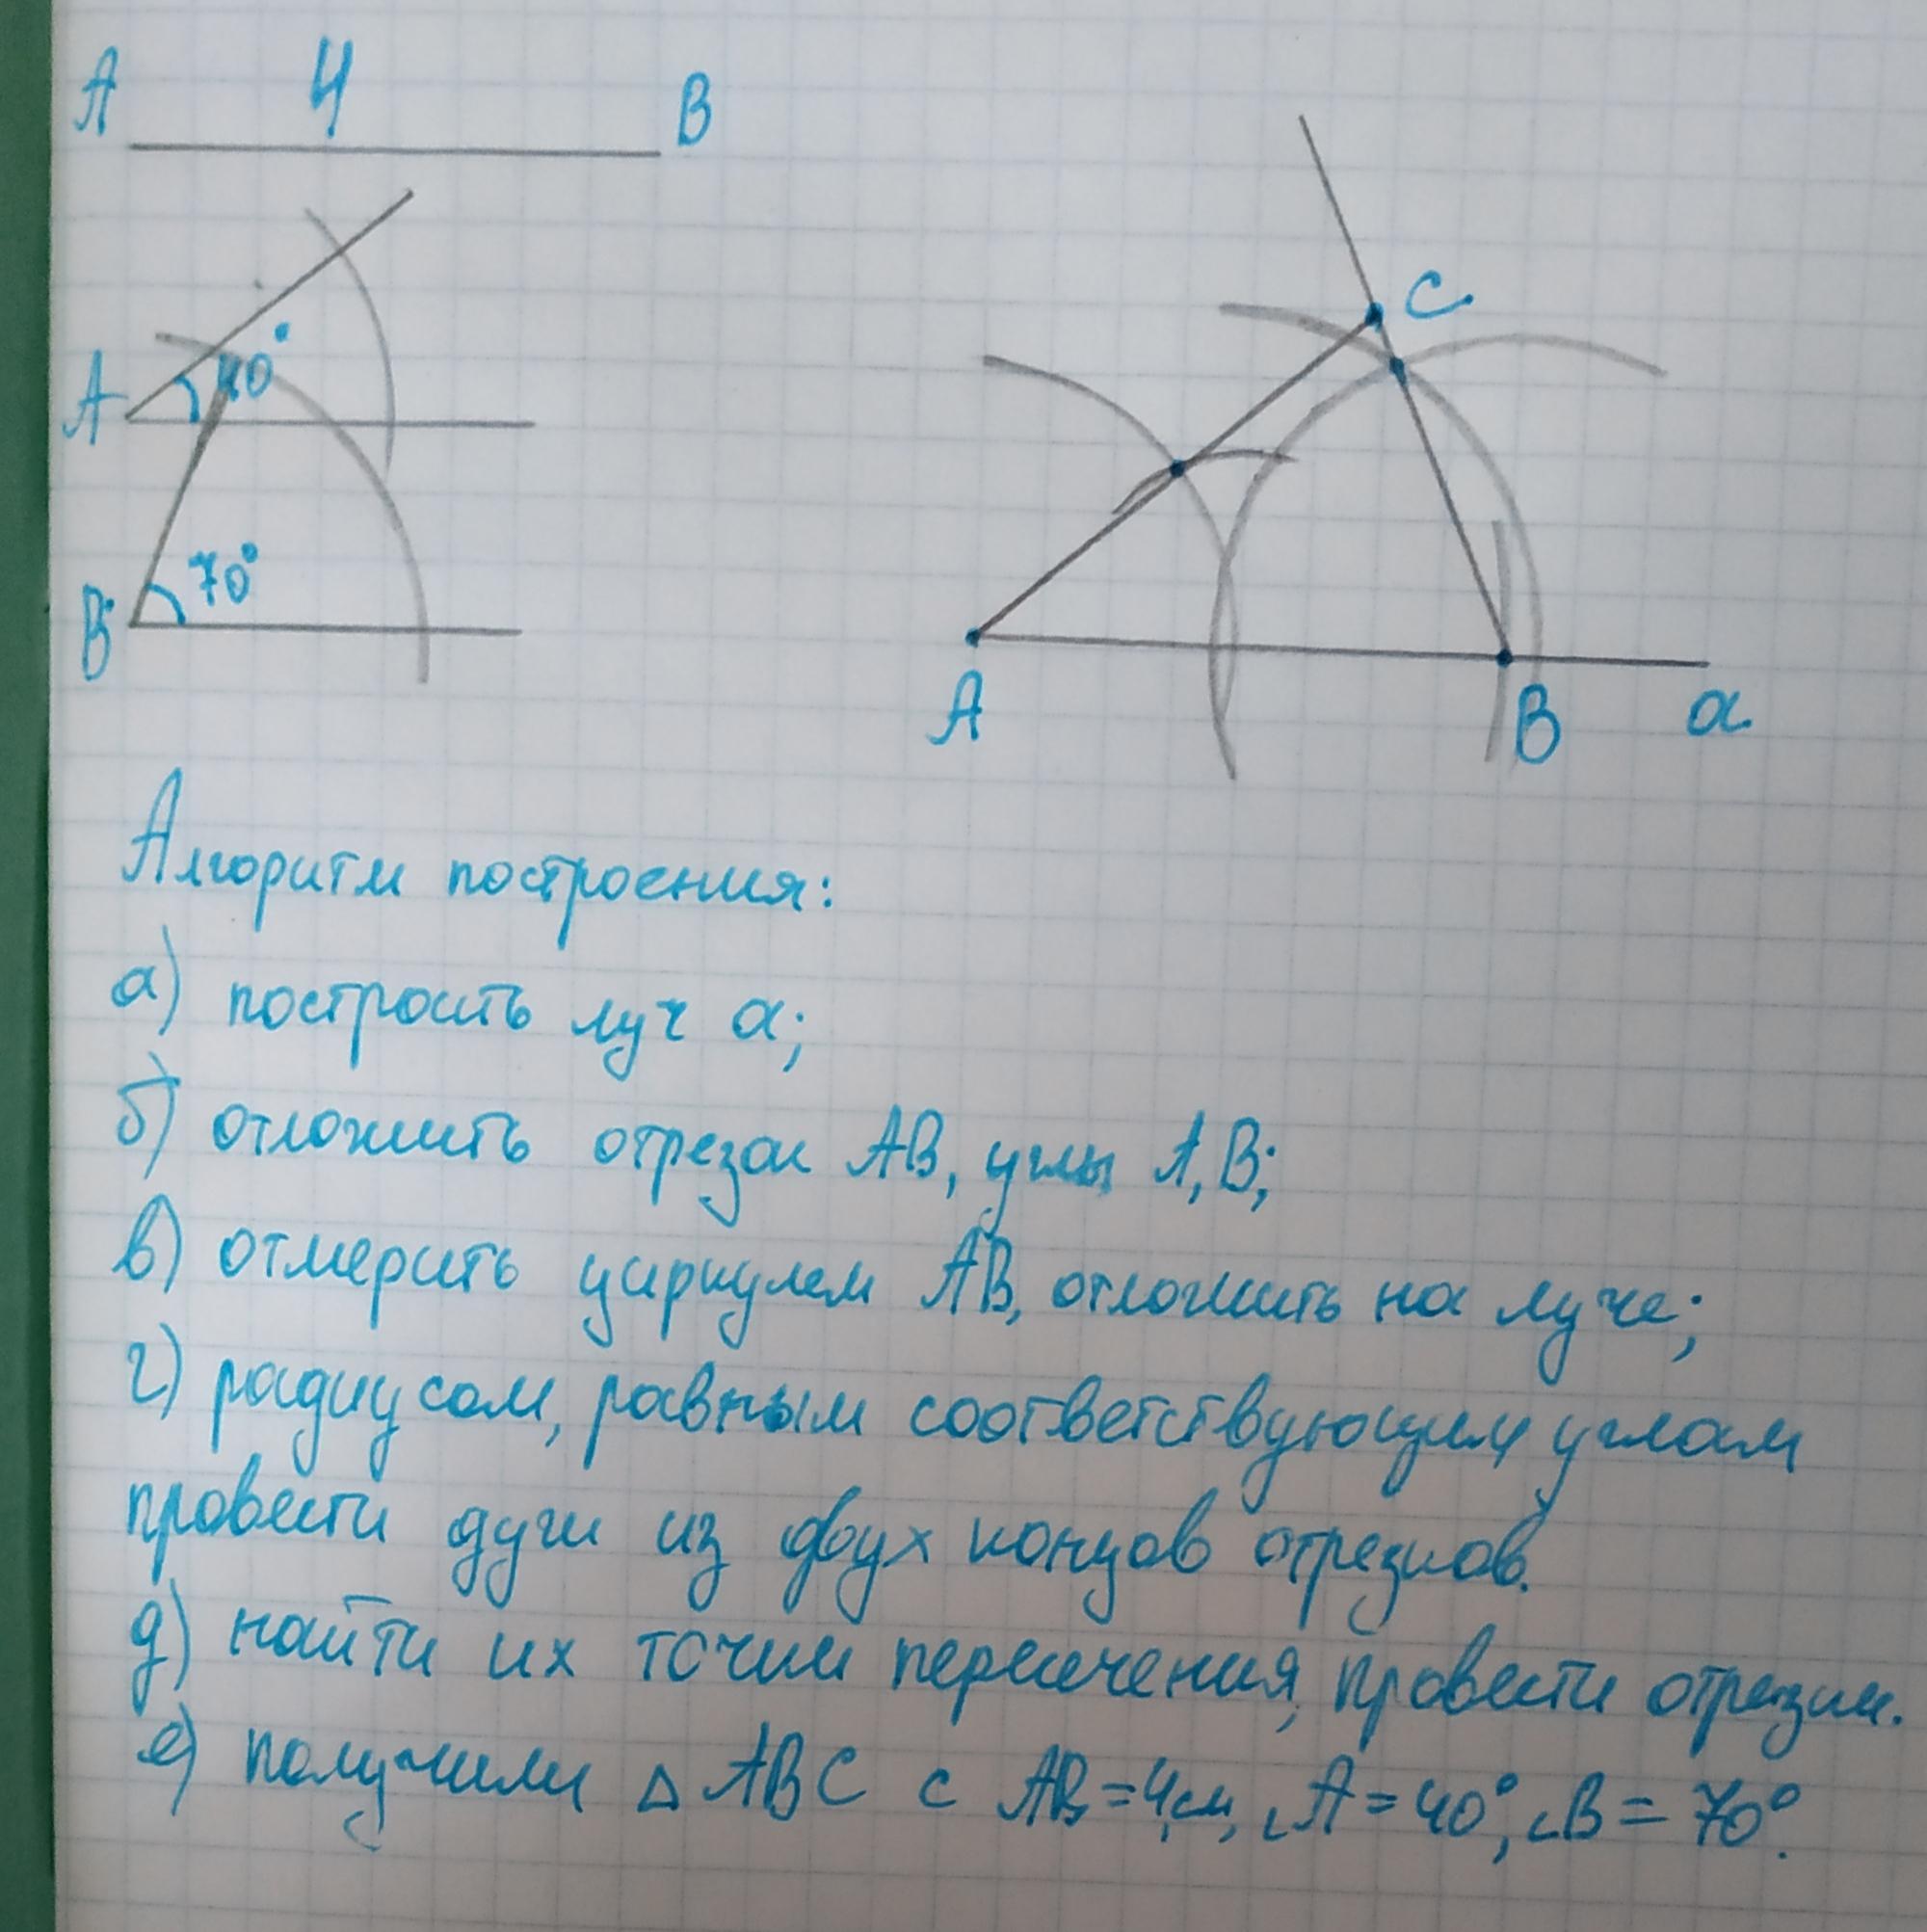 А 4 В
А 40°
В 70°
С
А В а
Алгоритм построения:
а) построить луч а;
б) отложить отрезок АВ, углы А, В;
в) отмерить циркулем АВ, отложить на луче;
г) радиусом, равным соответствующим углам
провести дуги из двух концов отрезков.
д) найти их точки пересечения, провести отрезки.
е) получили △ АВС с АВ = 4см, ∠А = 40°, ∠В = 70°.